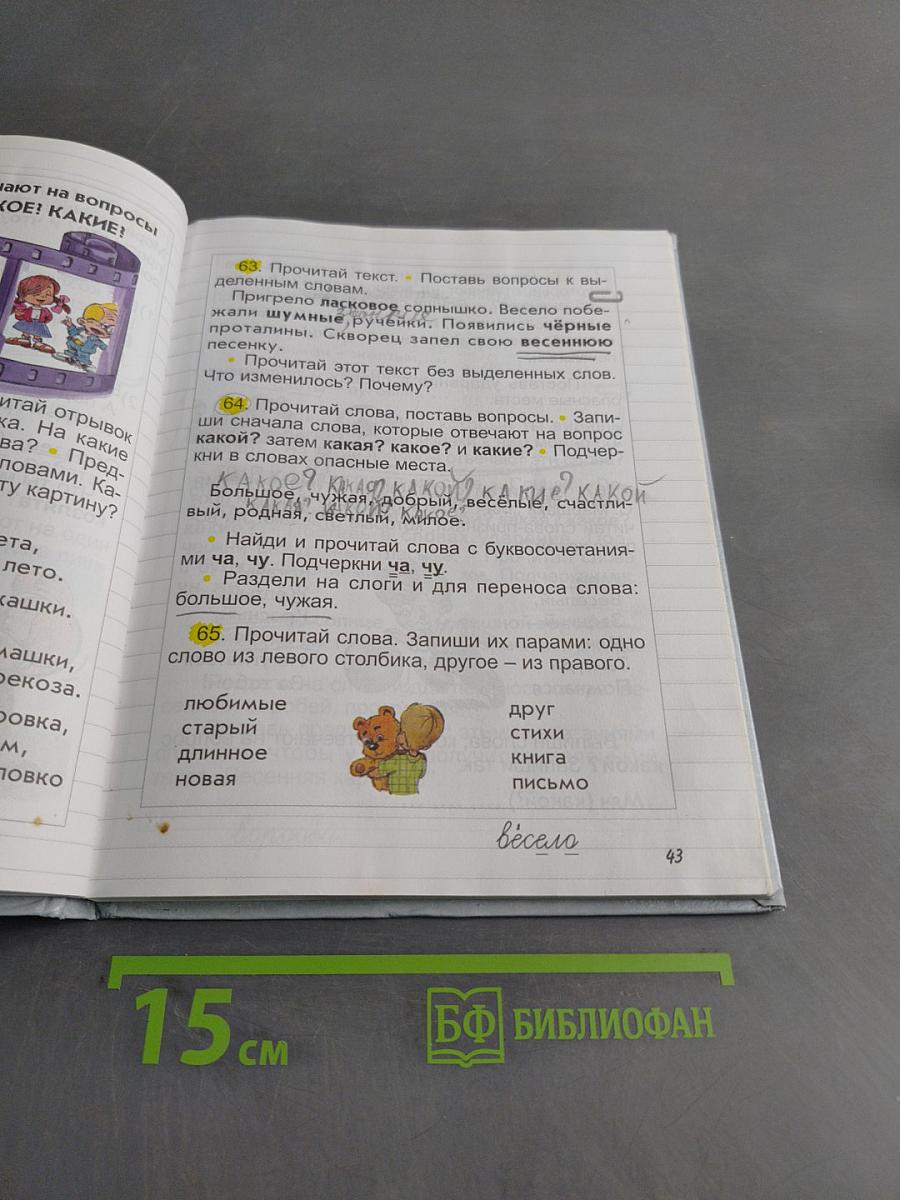 ают на вопросы
КОЕ? КАКИЕ?
итай отрывок
ка. На какие
ва? • Пред-
ловами. Ка-
ту картину?
ета,
лето.
кашки.
машки,
рекоза.
ровка,
м,
ловко
63. Прочитай текст. • Поставь вопросы к вы-
деленным словам.
Пригрело ласковое солнышко. Весело побе-
жали шумные ручейки. Появились чёрные
проталины. Скворец запел свою весеннюю
песенку.
• Прочитай этот текст без выделенных слов.
Что изменилось? Почему?
64. Прочитай слова, поставь вопросы. • Запи-
ши сначала слова, которые отвечают на вопрос
какой? затем какая? какое? и какие? • Подчер-
кни в словах опасные места.
КАКОЕ? КАКАЯ? КАКОЙ? КАКИЕ? КАКОЙ
Большое, чужая, добрый, весёлые, счастли-
КАКАЯ? КАКОЙ? КАКОЕ?
вый, родная, светлый, милое.
• Найди и прочитай слова с буквосочетания-
ми ча, чу. Подчеркни ча, чу.
• Раздели на слоги и для переноса слова:
большое, чужая.
65. Прочитай слова. Запиши их парами: одно
слово из левого столбика, другое – из правого.
любимые
старый
длинное
новая
друг
стихи
книга
письмо
весело
43
15 см
БФ БИБЛИОФАН